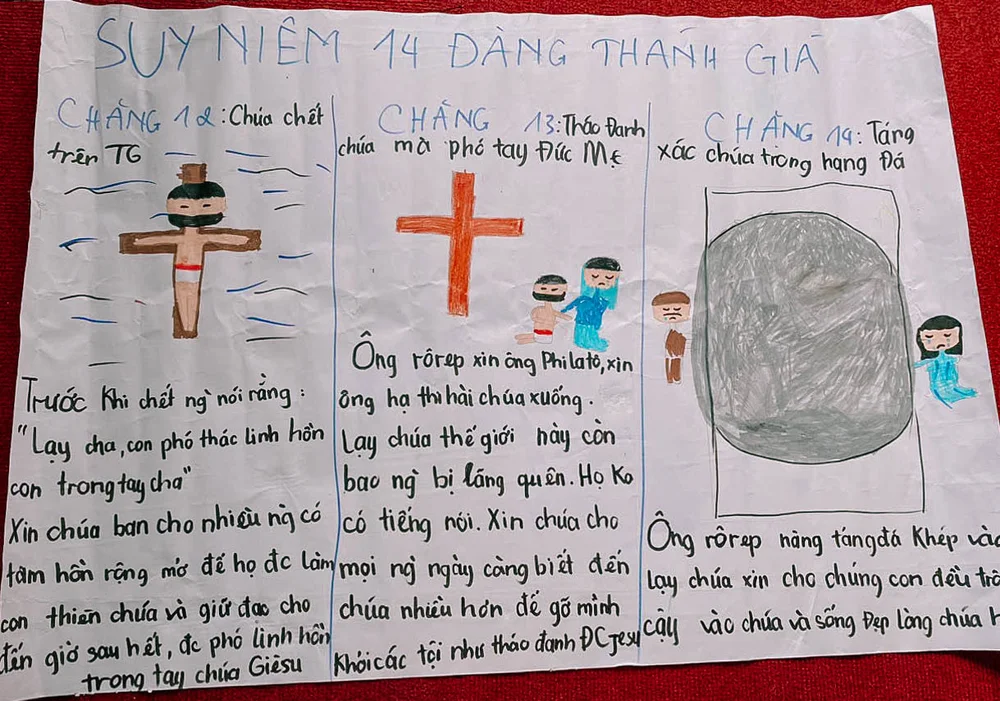 SUY NIÊM 14 ĐÀNG THÁNH GIÁ
CHẶNG 12: Chúa chết
trên TG
Trước khi chết ng` nói rằng:
"Lạy cha, con phó thác linh hồn
con trong tay cha"
Xin chúa ban cho nhiều ng` có
tâm hồn rộng mở để họ đc làm
con thiên chúa và giữ đạo cho
đến giờ sau hết, đc phó linh hồn
trong tay chúa Giêsu
CHẶNG 13: Tháo Đanh
chúa mà phó tay Đức Mẹ
Ông rôsep xin ông Philatô, xin
ông hạ thi hài chúa xuống.
Lạy chúa thế giới này còn
bao ng` bị lãng quên. Họ Ko
có tiếng nói. Xin chúa cho
mọi ng` ngày càng biết đến
chúa nhiều hơn để gỡ mình
khỏi các tội như tháo đanh ĐCJesu
CHẶNG 14: Táng
xác chúa trong hang Đá
Ông rôsep nâng tảng đá khép vào
lạy chúa xin cho chúng con đều
cậy vào chúa và sống Đẹp lòng chúa